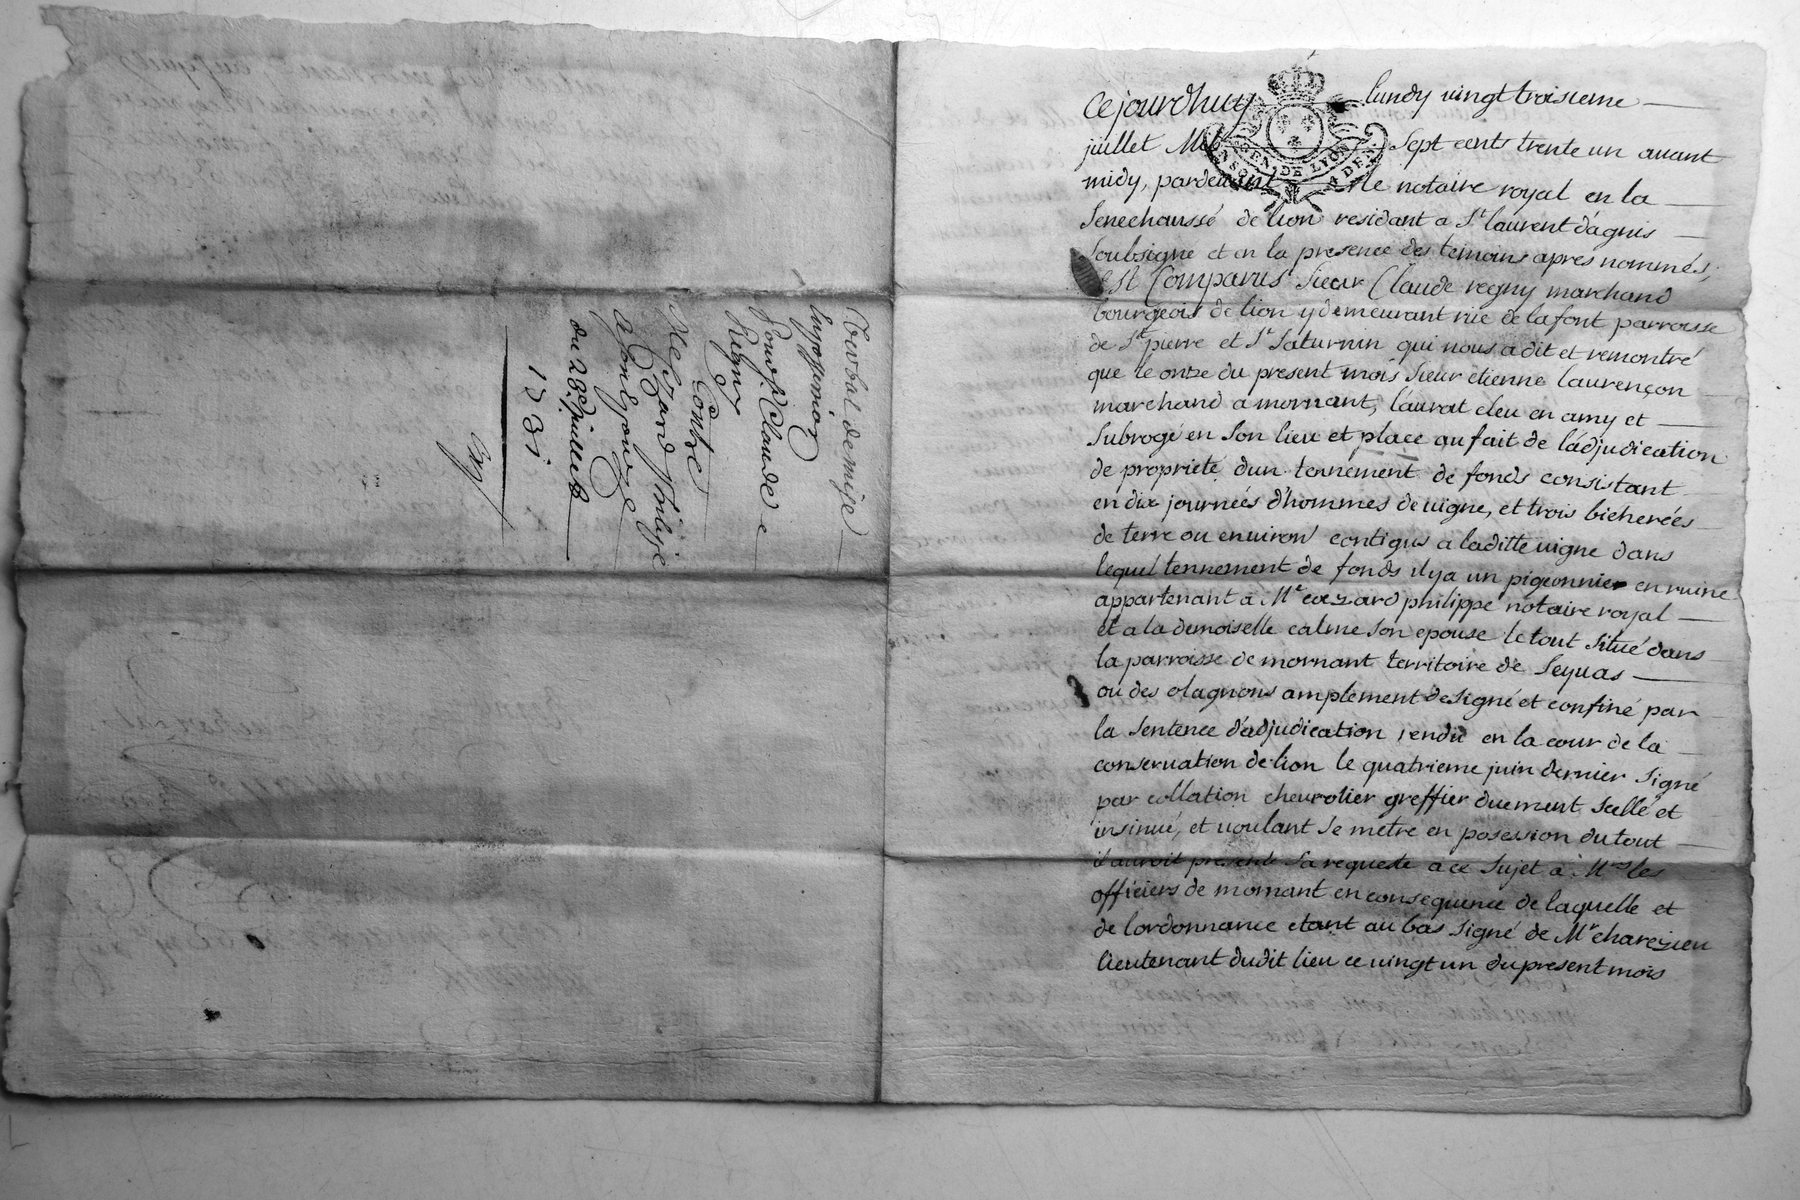 Verbal de mise
en possession
Pour Sr Claude
Regny
Contre
Me Cazard Philippe
& son Epouze
du 23e juillet
1731
cejourdhuy lundy vingt troisieme
juillet Mil Sept cents trente un auant
midy, pardeuant le notaire royal en la
Senechaussé de lion residant a St laurent dágnis
Soubsigné et en la presence des temoins apres nommés,
Est Comparus Sieur Claude regny marchand
bourgeois de lion y demeurant rue de la font parroisse
de St pierre et St Saturnin qui nous a dit et remontré
que le onze du present mois Sieur etienne laurençon
marchand a mornant, láurat eleu en amy et
Subrogé en Son lieu et place au fait de ládjudication
de proprieté dun tennement de fonds consistant
en dix journeés dhommes de uigne, et trois bicherées
de terre ou enuiron contigus a laditte uigne dans
lequel tennement de fonds il y a un pigeonnier en ruine
appartenant a Me cazard philippe notaire royal
et a la demoiselle calme Son epouse le tout Situé dans
la parroisse de mornant territoire de Seyuas
ou des olagnons amplement designé et confiné par
la Sentence dádjudication rendü en la cour de la
conseruation de lion le quatrieme juin dernier Signé
par collation cheurolier greffier duement Scellé et
insinué, et uoulant Se metre en posession du tout
il auroit presenté Sa requeste a ce Sujet a Mrs les
officiers de mornant en consequence de laquelle et
de lordonnance etant au bas Signé de Mr charezieu
lieutenant dudit lieu ce uingt un du present mois
GEN DE LYON